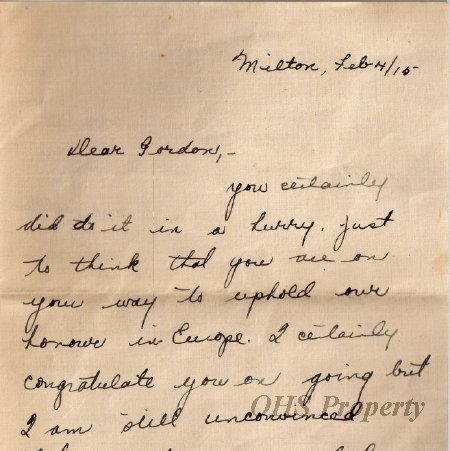 Milton, Feb 4/15
Dear Gordon,-
you certainly
did do it in a hurry. Just
to think that you are on
your way to uphold our
honour in Europe. I certainly
congratulate you on going but
I am still unconvinced
QHS Property